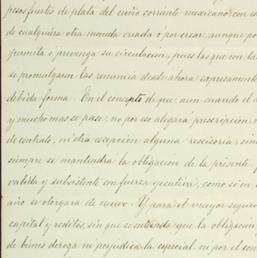 pesos fuertes de plata del cuño corriente mexicano, con es
de cualquiera otra moneda criada ó por crear, aunque po
permita ó prevenga su circulacion, pues las que con ta
se promulgaren las renuncia desde ahora espresamente
debida forma. En el concepto de que, aun cuando el a
y mucho mas se pase, no por eso alegará prescripcion
de contrato, ni otra escepcion alguna rescisoria; sino
siempre se mantendrá la obligacion de la presente
valida y subsistente con fuerza ejecutiva, como si en
año se otorgara de nuevo. Y para el mayor seguro
capital y reditos, sin que se entienda que la obligacion
de bienes deroga ni perjudica la especial ni por el con